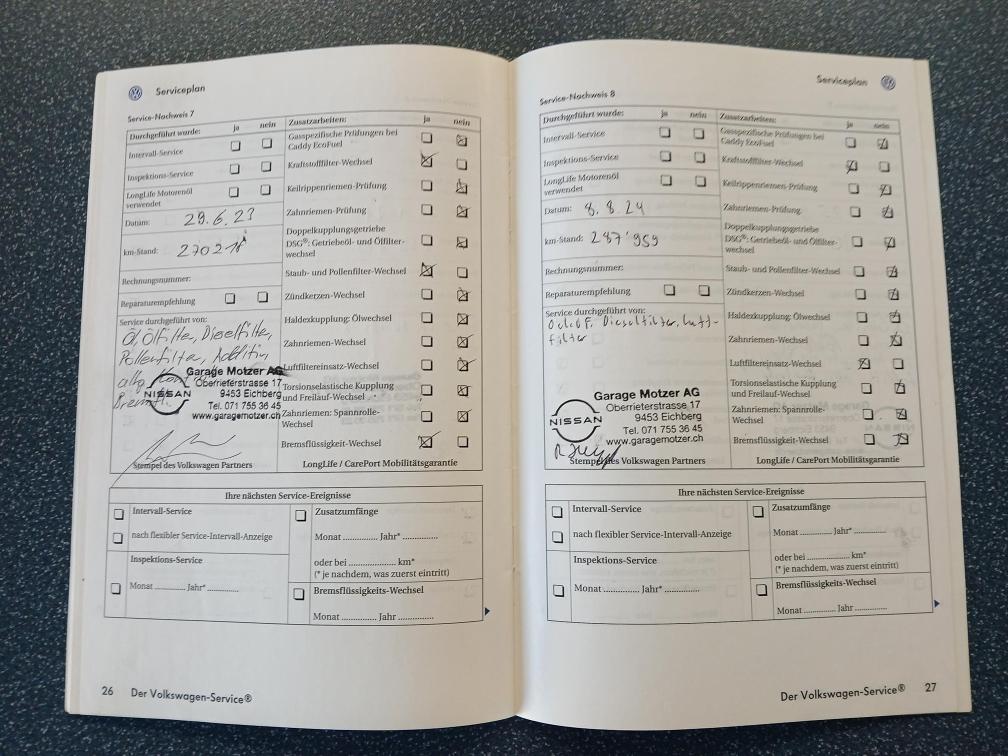 Serviceplan
Service-Nachweis 7
Durchgeführt wurde: ja nein
Intervall-Service
Inspektions-Service
LongLife Motorenöl
verwendet
Datum: 29.6.23
km-Stand: 2702
Rechnungsnummer:
Reparaturempfehlung
Service durchgeführt von:
Öl, Ölfilter, Dieselfilter,
Pollenfilter, Additiv,
alle
Garage Motzer AG
Oberrieterstrasse 17
9453 Eichberg
Tel. 071 755 36 45
www.garagemotzer.ch
NISSAN
Stempel des Volkswagen Partners
Zusatzarbeiten: ja nein
Gasspezifische Prüfungen bei
Caddy EcoFuel
Kraftstofffilter-Wechsel
Keilrippenriemen-Prüfung
Zahnriemen-Prüfung
Doppelkupplungsgetriebe
DSG®: Getriebeöl- und Ölfilter-
wechsel
Staub- und Pollenfilter-Wechsel
Zündkerzen-Wechsel
Haldexkupplung: Ölwechsel
Zahnriemen-Wechsel
Luftfiltereinsatz-Wechsel
Torsionselastische Kupplung
und Freilauf-Wechsel
Zahnriemen: Spannrolle-
Wechsel
Bremsflüssigkeit-Wechsel
LongLife / CarePort Mobilitätsgarantie
Ihre nächsten Service-Ereignisse
Intervall-Service
nach flexibler Service-Intervall-Anzeige
Inspektions-Service
Monat ........... Jahr* ...........
Zusatzumfänge
Monat ............ Jahr* ............
oder bei ................ km*
(* je nachdem, was zuerst eintritt)
Bremsflüssigkeits-Wechsel
Monat ............ Jahr ............
26 Der Volkswagen-Service®
Serviceplan
Service-Nachweis 8
Durchgeführt wurde: ja nein
Intervall-Service
Inspektions-Service
LongLife Motorenöl
verwendet
Datum: 8.8.24
km-Stand: 287'959
Rechnungsnummer:
Reparaturempfehlung
Service durchgeführt von:
Dieselfilter, Luft-
filter
Garage Motzer AG
Oberrieterstrasse 17
9453 Eichberg
Tel. 071 755 36 45
www.garagemotzer.ch
NISSAN
Stempel des Volkswagen Partners
Zusatzarbeiten: ja nein
Gasspezifische Prüfungen bei
Caddy EcoFuel
Kraftstofffilter-Wechsel
Keilrippenriemen-Prüfung
Zahnriemen-Prüfung
Doppelkupplungsgetriebe
DSG®: Getriebeöl- und Ölfilter-
wechsel
Staub- und Pollenfilter-Wechsel
Zündkerzen-Wechsel
Haldexkupplung: Ölwechsel
Zahnriemen-Wechsel
Luftfiltereinsatz-Wechsel
Torsionselastische Kupplung
und Freilauf-Wechsel
Zahnriemen: Spannrolle-
Wechsel
Bremsflüssigkeit-Wechsel
LongLife / CarePort Mobilitätsgarantie
Ihre nächsten Service-Ereignisse
Intervall-Service
nach flexibler Service-Intervall-Anzeige
Inspektions-Service
Monat ........... Jahr* ...........
Zusatzumfänge
Monat ............ Jahr* ............
oder bei ................ km*
(* je nachdem, was zuerst eintritt)
Bremsflüssigkeits-Wechsel
Monat ............ Jahr ............
Der Volkswagen-Service® 27